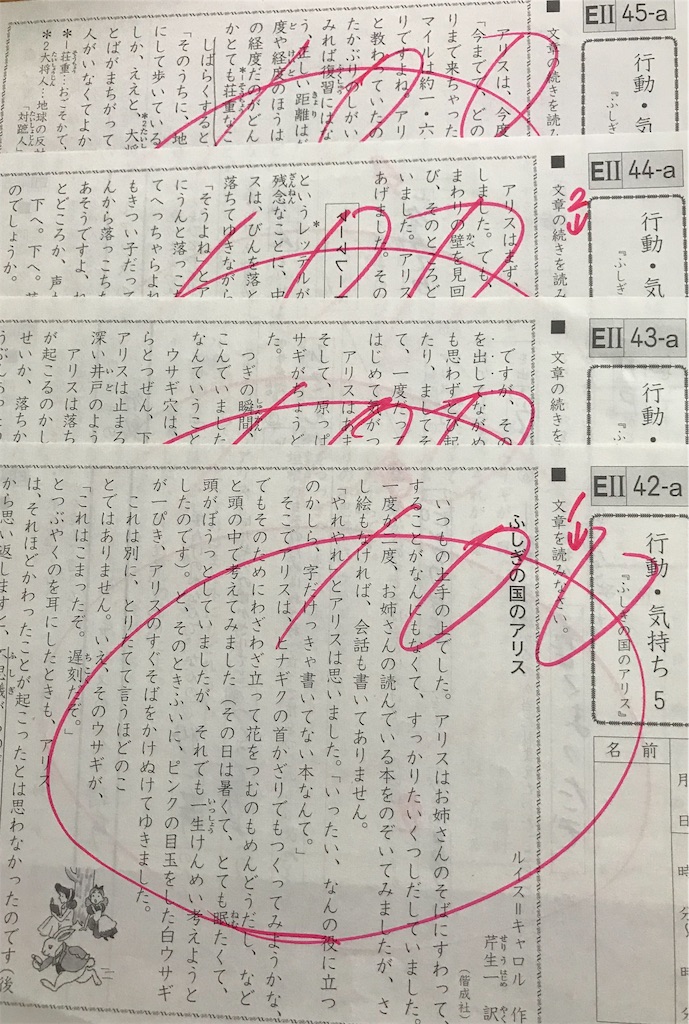 EII 45-a
行動・気
『ふしぎ
文章の続きを読み
アリスは、今度
「今までで、どの
りまで来ちゃった
マイルは約一・六
りですよね。アリ
と教わっていたの
たかぶりのしがい
みれば復習にはな
う、正しい距離は
度や経度のほうは
の経度だのがどん
かとても荘重なこ
しばらくすると
「そのうちに、地
にして歩いている
しか、ええと、大将
とばがまちがって
人がいなくてよか
*1荘重…おごそかで、
*2大将人…地球の反対
「対蹠人」
EII 44-a
行動・気
『ふしぎ
文章の続きを読み
アリスはまず、
しました。でも、
まわりの壁を見回
び、そのところど
いました。アリス
あげました。その
というレッテルが
残念なことに、中
スは、びんを落と
落ちてゆきながら
「そうよね」とア
にうんと落っこち
もきつい子だって
てへっちゃらよね
んから落っこちた
あそうですよ、ね
とどころか、声も
下へ。下へ。
のでしょうか。
EII 43-a
行動・
『ふ
文章の続きを
ですが、その
を出してながめ
も思わずとび起
たり、ましてそ
て、一度だって
はじめて気がつ
アリスはあま
そして、原っぱ
サギがちょうど
た。
つぎの瞬間
こんでいました
なんていうこと
ウサギ穴は、
らとつぜん、下
アリスは止まろ
深い井戸のよう
アリスは落ち
が起こるのかし
せいか、落ちか
EII 42-a
行動・気持ち 5
『ふしぎの国のアリス』
名前
月
日
時
分
時
文章を読みなさい。
ふしぎの国のアリス
ルイス=キャロル 作
芹生一 訳
(偕成社)
いつもの土手の上でした。アリスはお姉さんのそばにすわって、
することがなんにもなくて、すっかりたいくつしだしていました。
一度か二度、お姉さんの読んでいる本をのぞいてみましたが、さ
し絵もなければ、会話も書いてありません。
「やれやれ」とアリスは思いました。「いったい、なんの役に立つ
のかしら、字だけっきゃ書いてない本なんて。」
そこでアリスは、ヒナギクの首かざりでもつくってみようかな、
でもそのためにわざわざ立って花をつむのもめんどうだし、など
と頭の中で考えてみました(その日は暑くて、とても眠たくて、
頭がぼうっとしていましたが、それでも一生けんめい考えようと
したのです)。と、そのときふいに、ピンクの目玉をした白ウサギ
が一ぴき、アリスのすぐそばをかけぬけてゆきました。
これは別に、とりたてて言うほどのこ
とではありません。いえ、そのウサギが、
「これはこまったぞ。遅刻だぞ。」
とつぶやくのを耳にしたときも、アリス
は、それほどかわったことが起こったとは思わなかったのです(後
から思い返しますと、